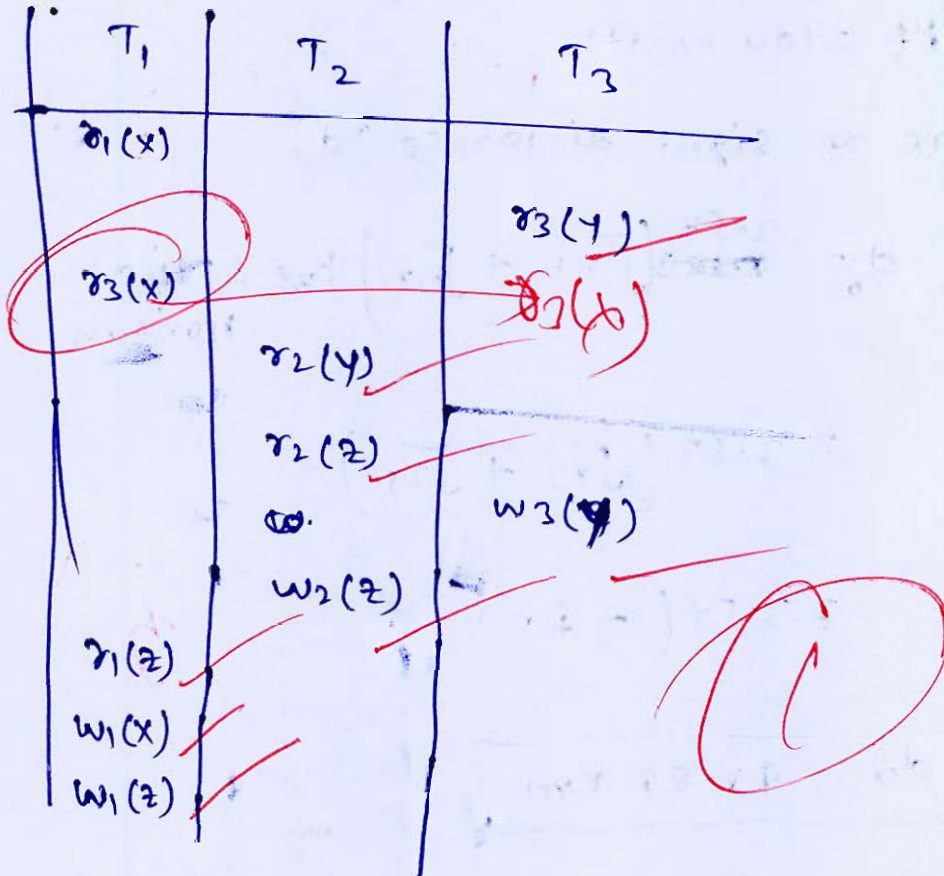 T1 T2 T3
r1(x)
r3(y)
r3(x) r3(x)
r2(y)
r2(z)
w3(y)
w2(z)
r1(z)
w1(x)
w1(z)